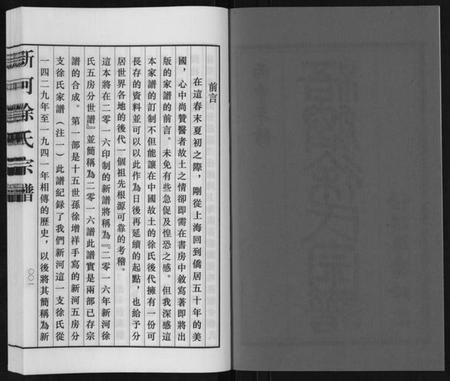 前言
在這春末夏初之際，剛從上海回到僑居五十年的美
國，心中尚贊醫者故土之情卻即需在書房中敘寫著即將出
版的家譜的前言。未免有些急促及惶恐之感。但我深感這
本家譜的訂制不但能讓在中國故土的徐氏後代擁有一份可
長存的資料並可以以此作為日後再延續的起點，也給予分
居世界各地的後代一個祖先根源可靠的考稽。
這本將在二〇一六印制的新譜將稱為『二〇一六年新河徐
氏五房分世譜』並簡稱為二〇一六譜此譜實是兩部已存宗
譜的合成。第一部是十五世孫徐增祥手寫的新河五房分
支徐氏家譜（注一）此譜紀錄了我們新河這一支徐氏從
一四二九年至一九四一年相傳的歷史，以後將其簡稱為新
新河徐氏宗譜
一〇〇